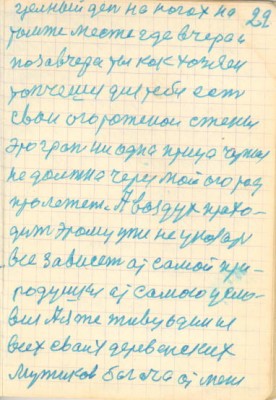 29
целный ден на ногах на
томже месте где вчера и
позавчеда ты как хозяен
топчеш и для тебя ест
свои огороженой стены
это грап ни одна птица чужая
не должна через мой огород
пролетет. А воздух прохо-
дит этому ти не
все зависет от самой при-
родушки от самого усло-
вия А я же живу один из
всех своих деревенских
мужиков богача от меня